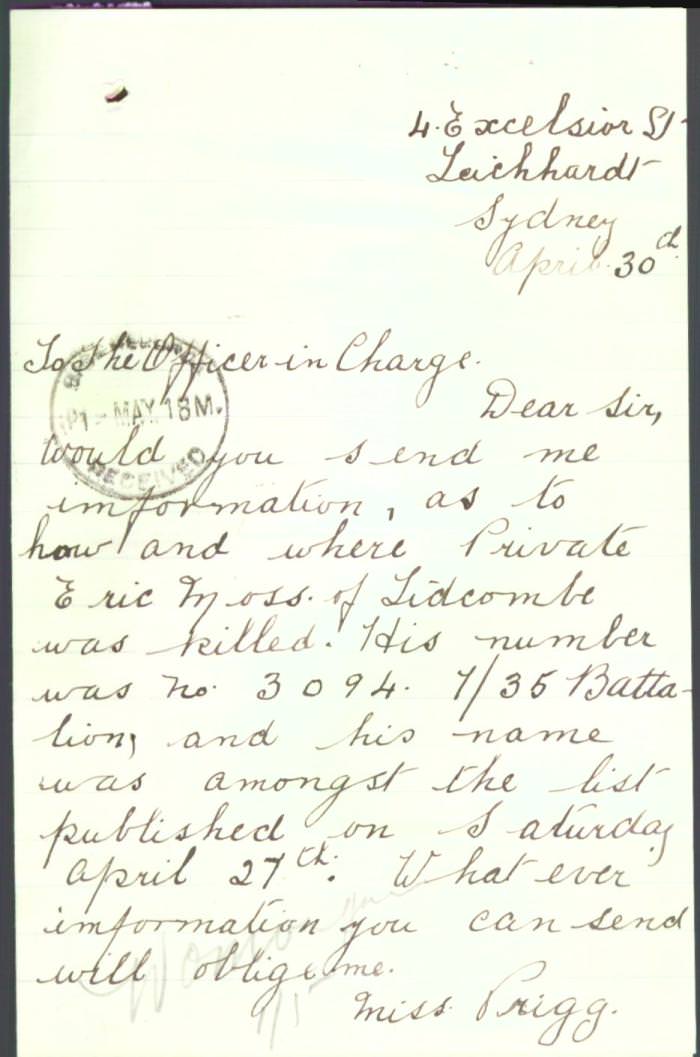 4. Excelsior St
Leichhardt
Sydney
April 30th
To The Officer in Charge.
Dear Sir,
would you send me
imformation, as to
how and where Private
Eric Moss. of Lidcombe
was killed. His number
was No. 3094. 7/35 Batta-
lion, and his name
was amongst the list
published on Saturday
April 27th. What ever
imformation you can send
will oblige me.
Miss Prigg.
1 - MAY. 18
RECEIVED